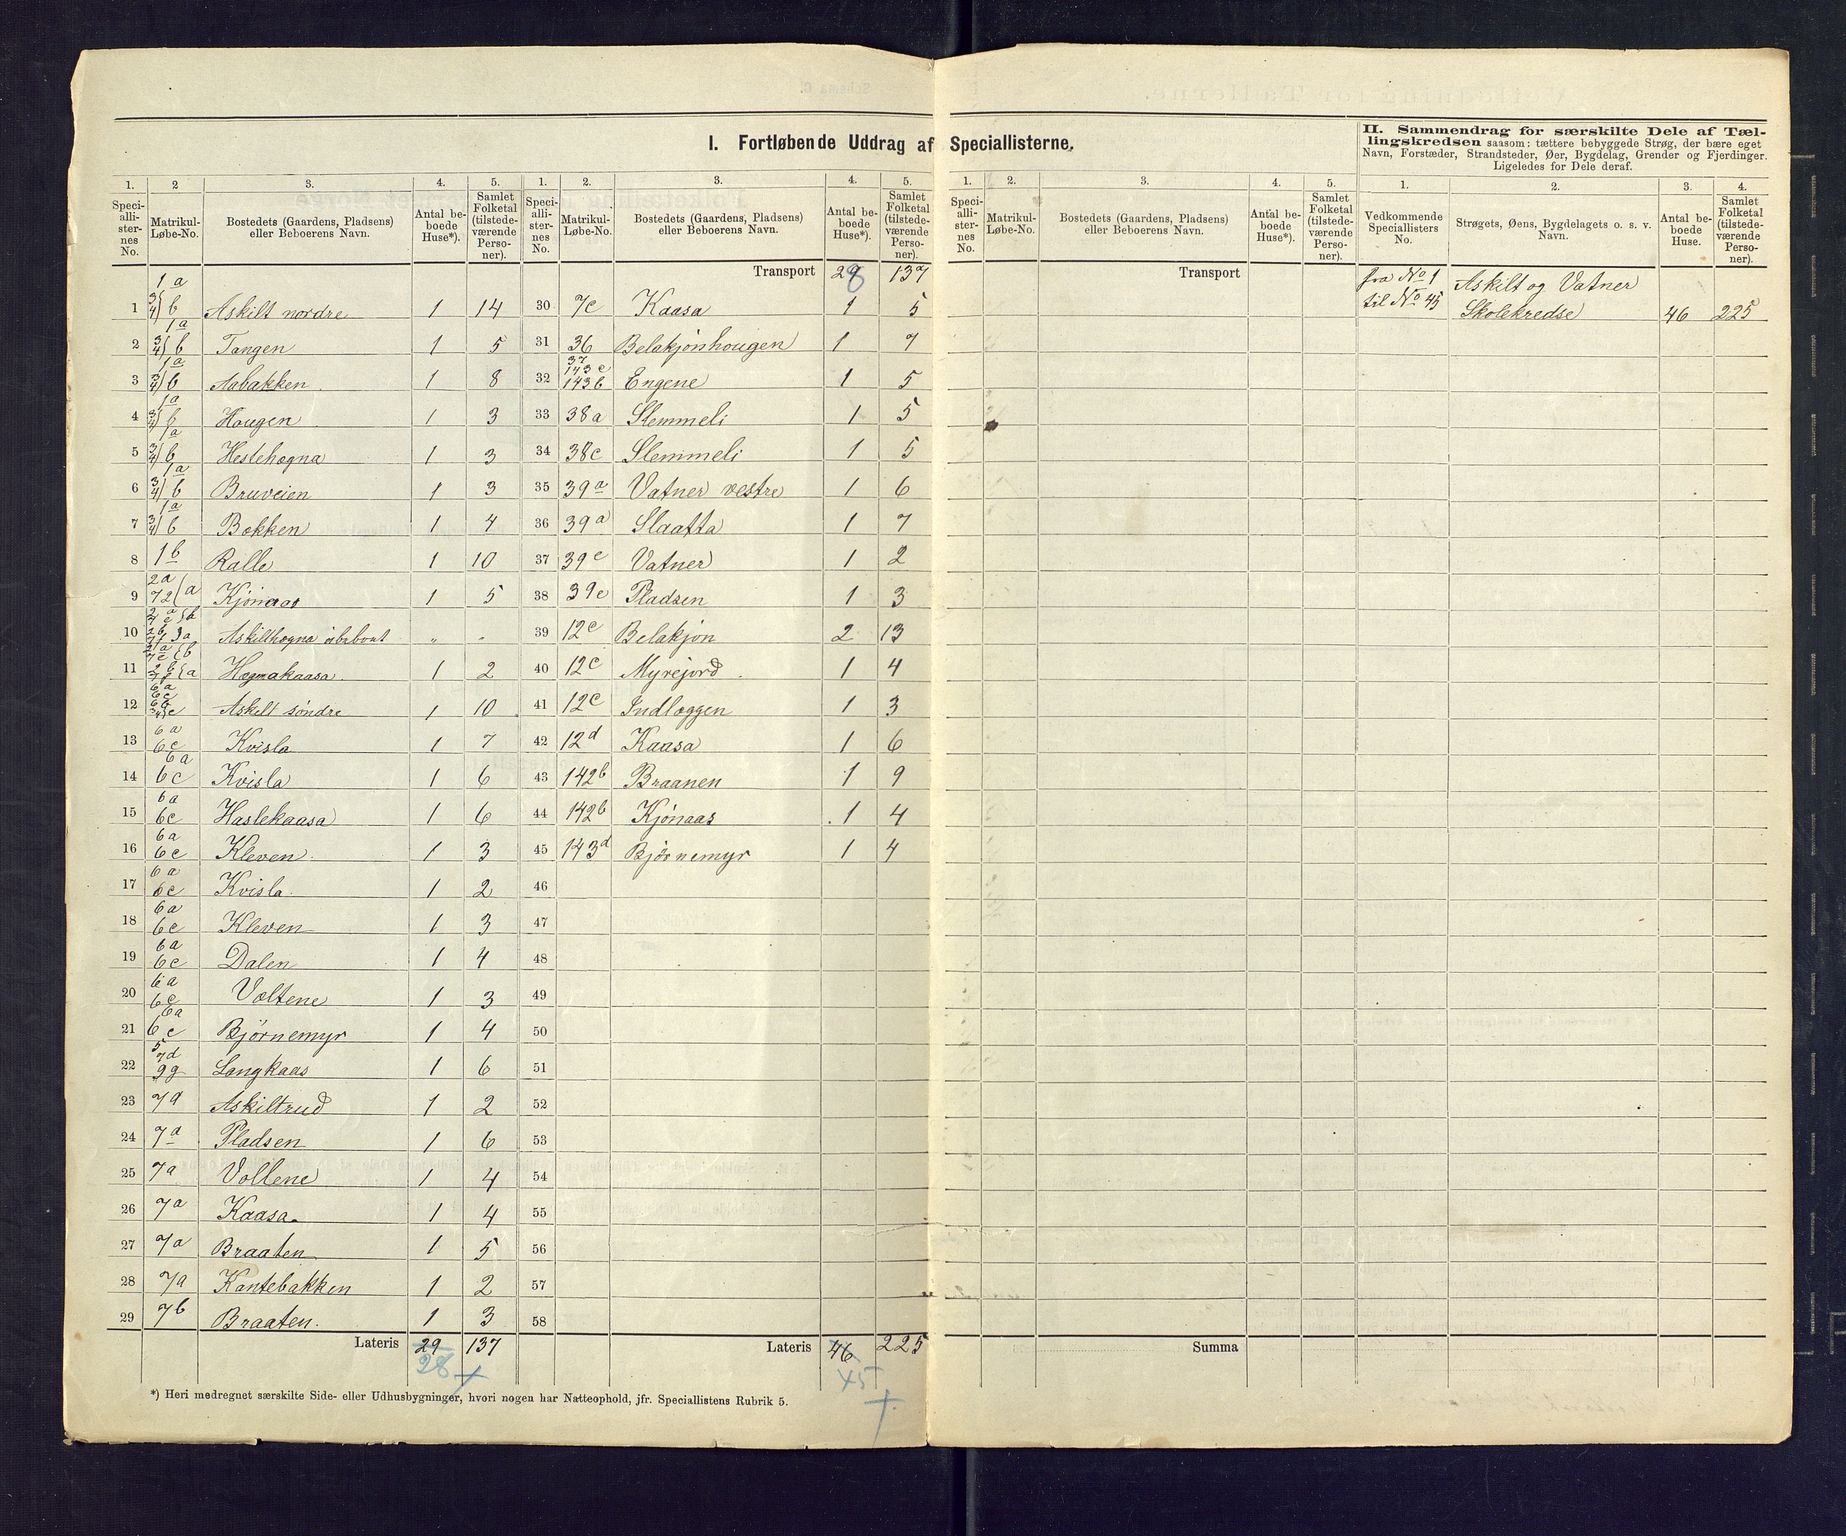 I. Fortløbende Uddrag af Speciallisterne.
II. Sammendrag for særskilte Dele af Tæl-
lingskredsen saasom: tættere bebyggede Strøg, der bære eget
Navn, Forstæder, Strandsteder, Øer, Bygdelag, Grender og Fjerdinger.
Ligeledes for Dele deraf.
1. 2 3. 4. 5. 1. 2. 3. 4. 5. 1. 2. 3. 4. 5. 1. 2. 3. 4.
Speciallisternes No. Matrikul-Løbe-No. Bostedets (Gaardens, Pladsens) eller Beboerens Navn. Antal beboede Huse*). Samlet Folketal (tilstedeværende Personer).
Speciallisternes No. Matrikul-Løbe-No. Bostedets (Gaardens, Pladsens) eller Beboerens Navn. Antal beboede Huse*). Samlet Folketal (tilstedeværende Personer).
Speciallisternes No. Matrikul-Løbe-No. Bostedets (Gaardens, Pladsens) eller Beboerens Navn. Antal beboede Huse*). Samlet Folketal (tilstedeværende Personer).
Vedkommende Speciallisters No. Strøgets, Øens, Bygdelagets o. s. v. Navn. Antal beboede Huse. Samlet Folketal (tilstedeværende Personer).
1 1a 3/4 b Askilt nordre 1 14
2 1a 3/4 b Tangen 1 5
3 1a 3/4 b Aabakken 1 8
4 1a 3/4 b Haugen 1 3
5 1a 3/4 b Hestehogna 1 3
6 1a 3/4 b Bruveien 1 3
7 1a 3/4 b Bekken 1 4
8 1b Ralle 1 10
9 2a 72 a Kjönaas 1 5
10 Askilthogna ubebout „ „
11 Hognakaasa 1 2
12 6a 6c Askilt söndre 1 10
13 6a 6c Kvisla 1 7
14 6a 6c Kvisla 1 6
15 6a 6c Haslekaasa 1 6
16 6a 6c Kleven 1 3
17 6a 6c Kvisla 1 2
18 6a 6c Kleven 1 3
19 6a 6c Dalen 1 4
20 6a 6c Voltene 1 3
21 6a 6c Björnemyr 1 4
22 5 7d 9g Langkaas 1 6
23 7a Askiltrud 1 2
24 7a Pladsen 1 6
25 7a Vollene 1 4
26 7a Kaasa 1 4
27 7a Braaten 1 5
28 7a Kantebakken 1 2
29 7b Braaten 1 3
Lateris 29 137
28
Transport 29 8 137
30 7c Kaasa 1 5
31 36 Belakjönhougen 1 7
32 37 143c 143b Engene 1 5
33 38a Slemmeli 1 5
34 38c Slemmeli 1 5
35 39a Vatner vestre 1 6
36 39a Slaatta 1 7
37 39c Vatner 1 2
38 39c Pladsen 1 3
39 12c Belakjön 2 13
40 12c Myrejord 1 4
41 12c Indlæggen 1 3
42 12d Kaasa 1 6
43 142b Braanen 1 9
44 142b Kjönaas 1 4
45 143d Björnemyr 1 4
46
47
48
49
50
51
52
53
54
55
56
57
58
Lateris 46 225
45
Transport
Summa
fra No 1
til No 45
Askilt og Vatner
Skolekredse 46 225
*) Heri medregnet særskilte Side- eller Udhusbygninger, hvori nogen har Natteophold, jfr. Speciallistens Rubrik 5.